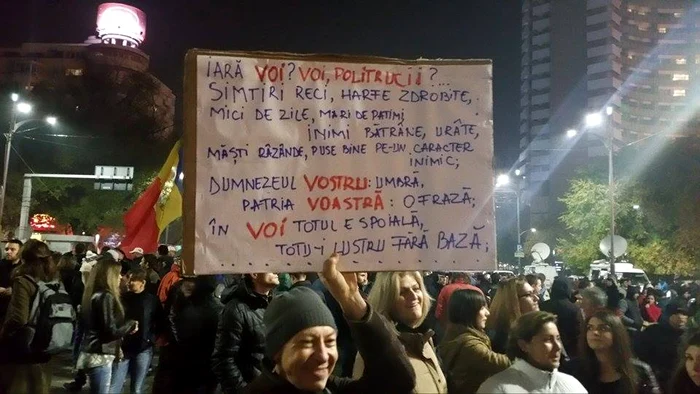 IARĂ VOI? VOI, POLITRUCII?...
SIMȚIRI RECI, HARFE ZDROBITE,
MICI DE ZILE, MARI DE PATIMI
INIMI BĂTRÂNE, URÂTE,
MĂȘTI RÂZÂNDE, PUSE BINE PE-UN CARACTER
INIMIC;
DUMNEZEUL VOSTRU: UMBRĂ,
PATRIA VOASTRĂ: O FRAZĂ;
ÎN VOI TOTUL E SPOIALĂ,
TOTU-I LUSTRU FĂRĂ BAZĂ;